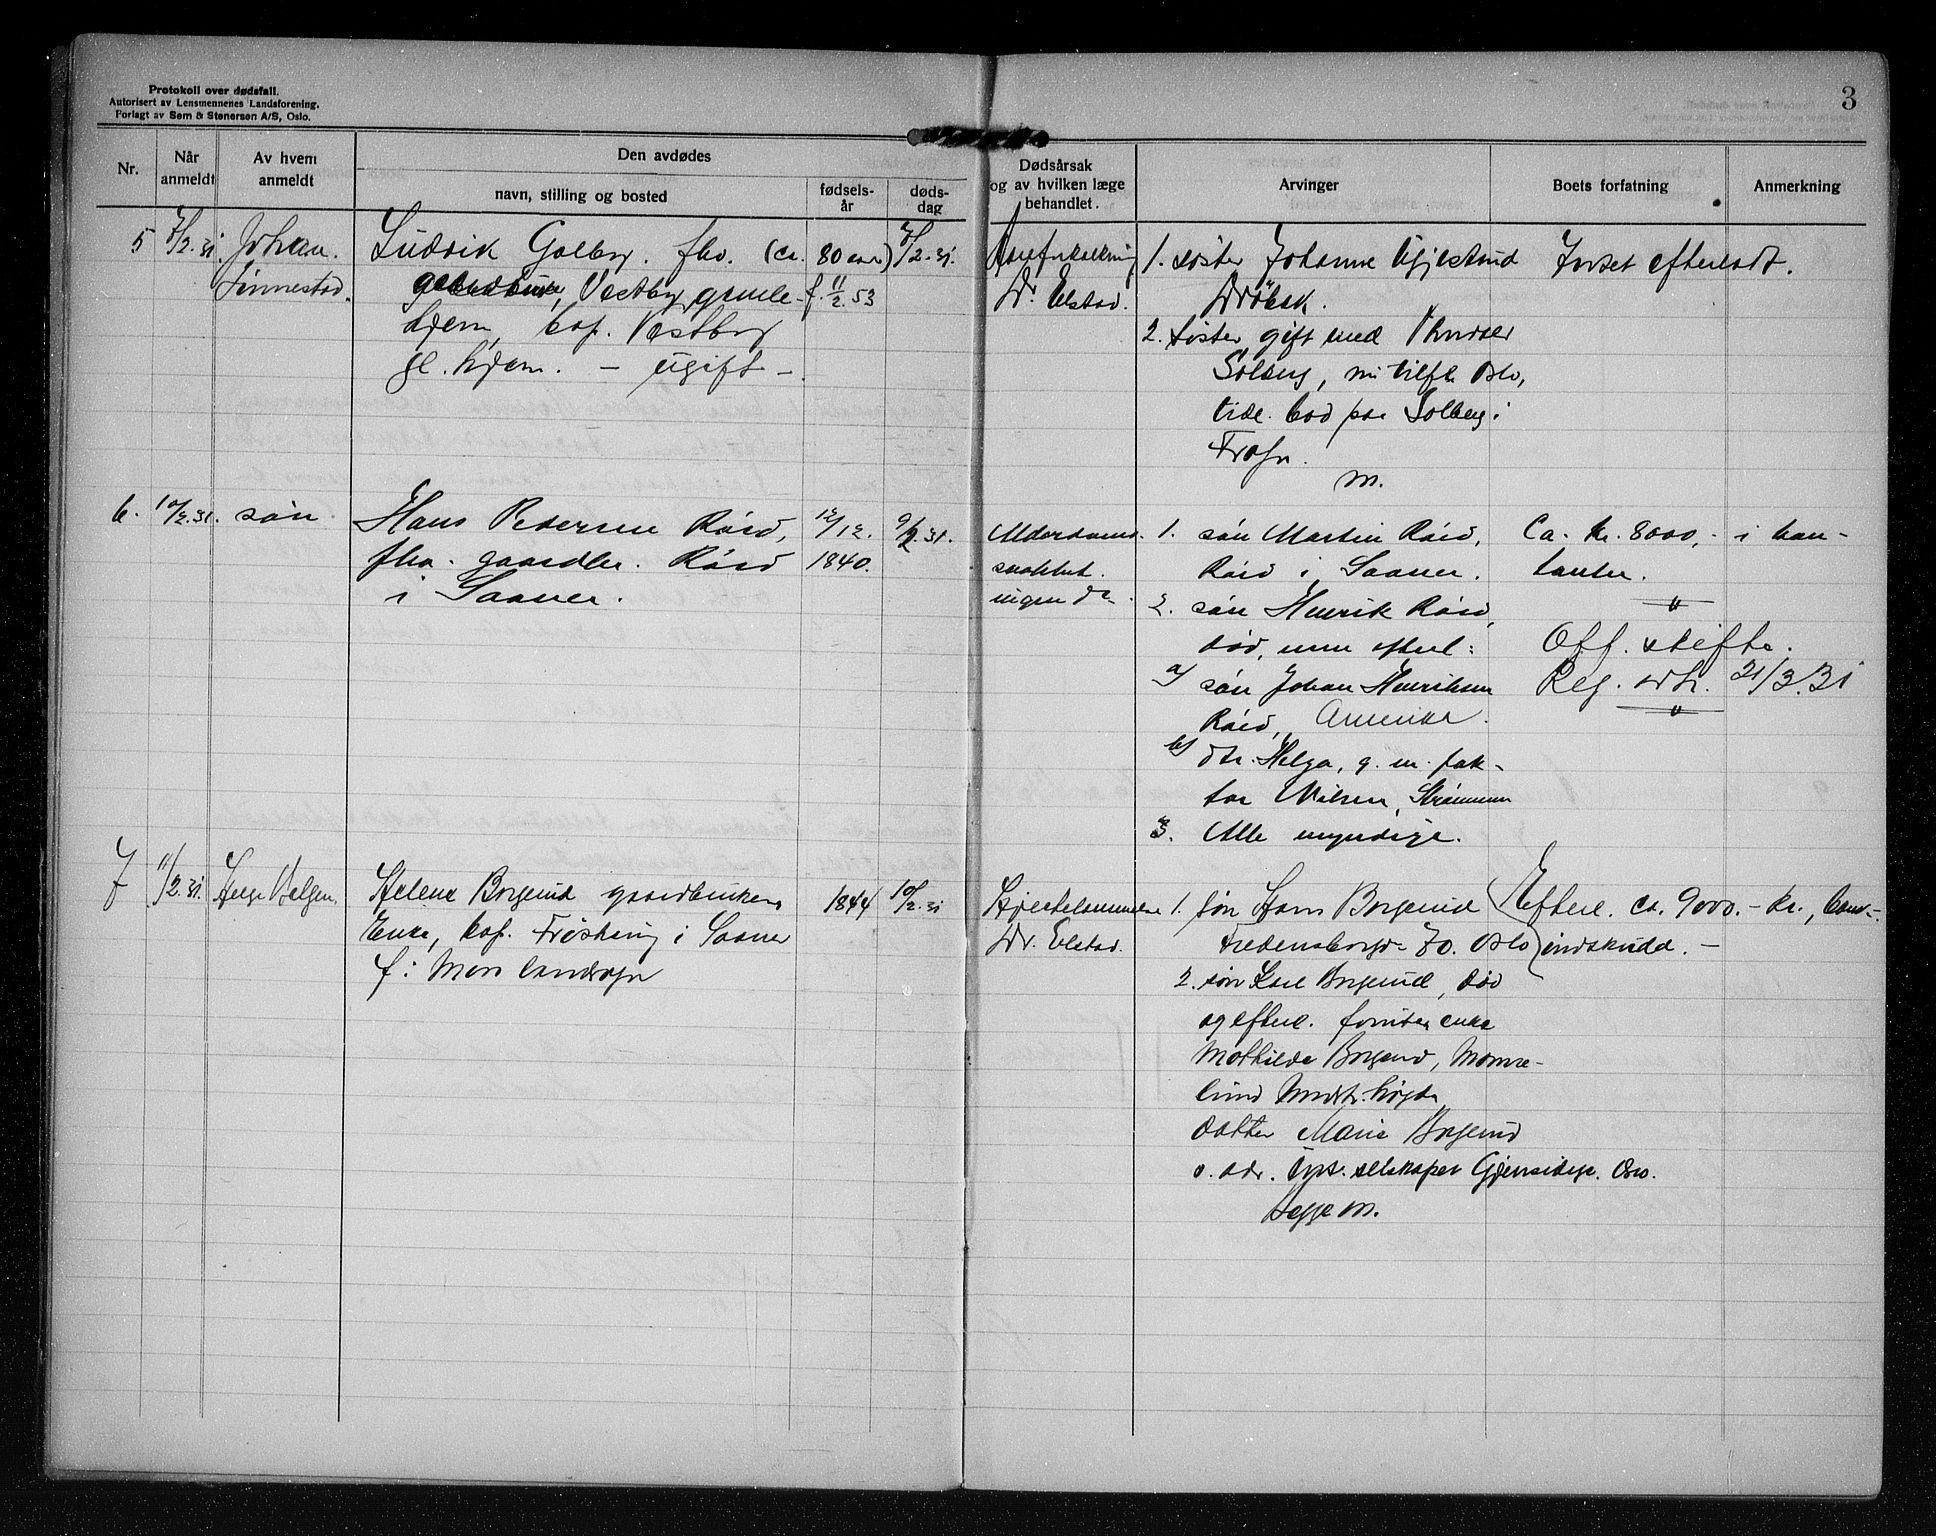 Protokoll over dødsfall.
Autorisert av Lensmennenes Landsforening.
Forlagt av Sem & Stenersen A/S, Oslo.
3
Nr.
Når
anmeldt
Av hvem
anmeldt
Den avdødes
navn, stilling og bosted
fødsels-
år
døds-
dag
Dødsårsak
og av hvilken læge
behandlet.
Arvinger
Boets forfatning
Anmerkning
5
7/2.31.
Johan
Sinnestad.
Ludvik Galby. fhv. (ca. 80 aar)
Vestby gamle-
hjem, bop. Vestby
gl. hjem. – ugift –
f. 11/2 53
7/2.31.
Aareforkalkning
Dr. Elstad.
1. søster Johanne
Drøbak.
2. søster gift med
Solberg, nu tilh. Oslo,
tidl. bod paa Solberg i
Frogn.
m.
Intet efterladt.
6.
10/2.31.
søn
Hans Pedersen Røed,
fhv. gaardbr. Røed
i Saaner.
12/12.
1840.
9/2.31.
Alderdoms-
svakhet.
ingen dr.
1. søn Martin Røed,
Røed i Saaner.
2. søn Henrik Røed,
død, men efterl:
a/ søn Johan Henriksen
Røed, Amerika.
b/ dtr. Helga, g. m. fak-
tor Nilsen, Strømmen
3. Alle myndige.
Ca. kr. 8000,- i kon-
tanter.
"
Off. skifte.
Reg. avh. 21/3.31
"
7
11/2.31.
Helge Helgen.
Helene Borgerud gaardbrukers
Enke, bop. Frøshaug i Saaner
f: Moss landsogn
1844
10/2.31
Hjertelammelse
Dr. Elstad.
1. søn Hans Borgerud
Fredensborgv. 70. Oslo
2. søn Karl Borgerud, død
og efterl. foruten enke
Mathilde Borgerud,
datter Marie Borgerud
o. adr. selskapet Gjensidige. Oslo.
Begge m.
Efterl. ca. 9000.- kr., bank-
indskudd. –